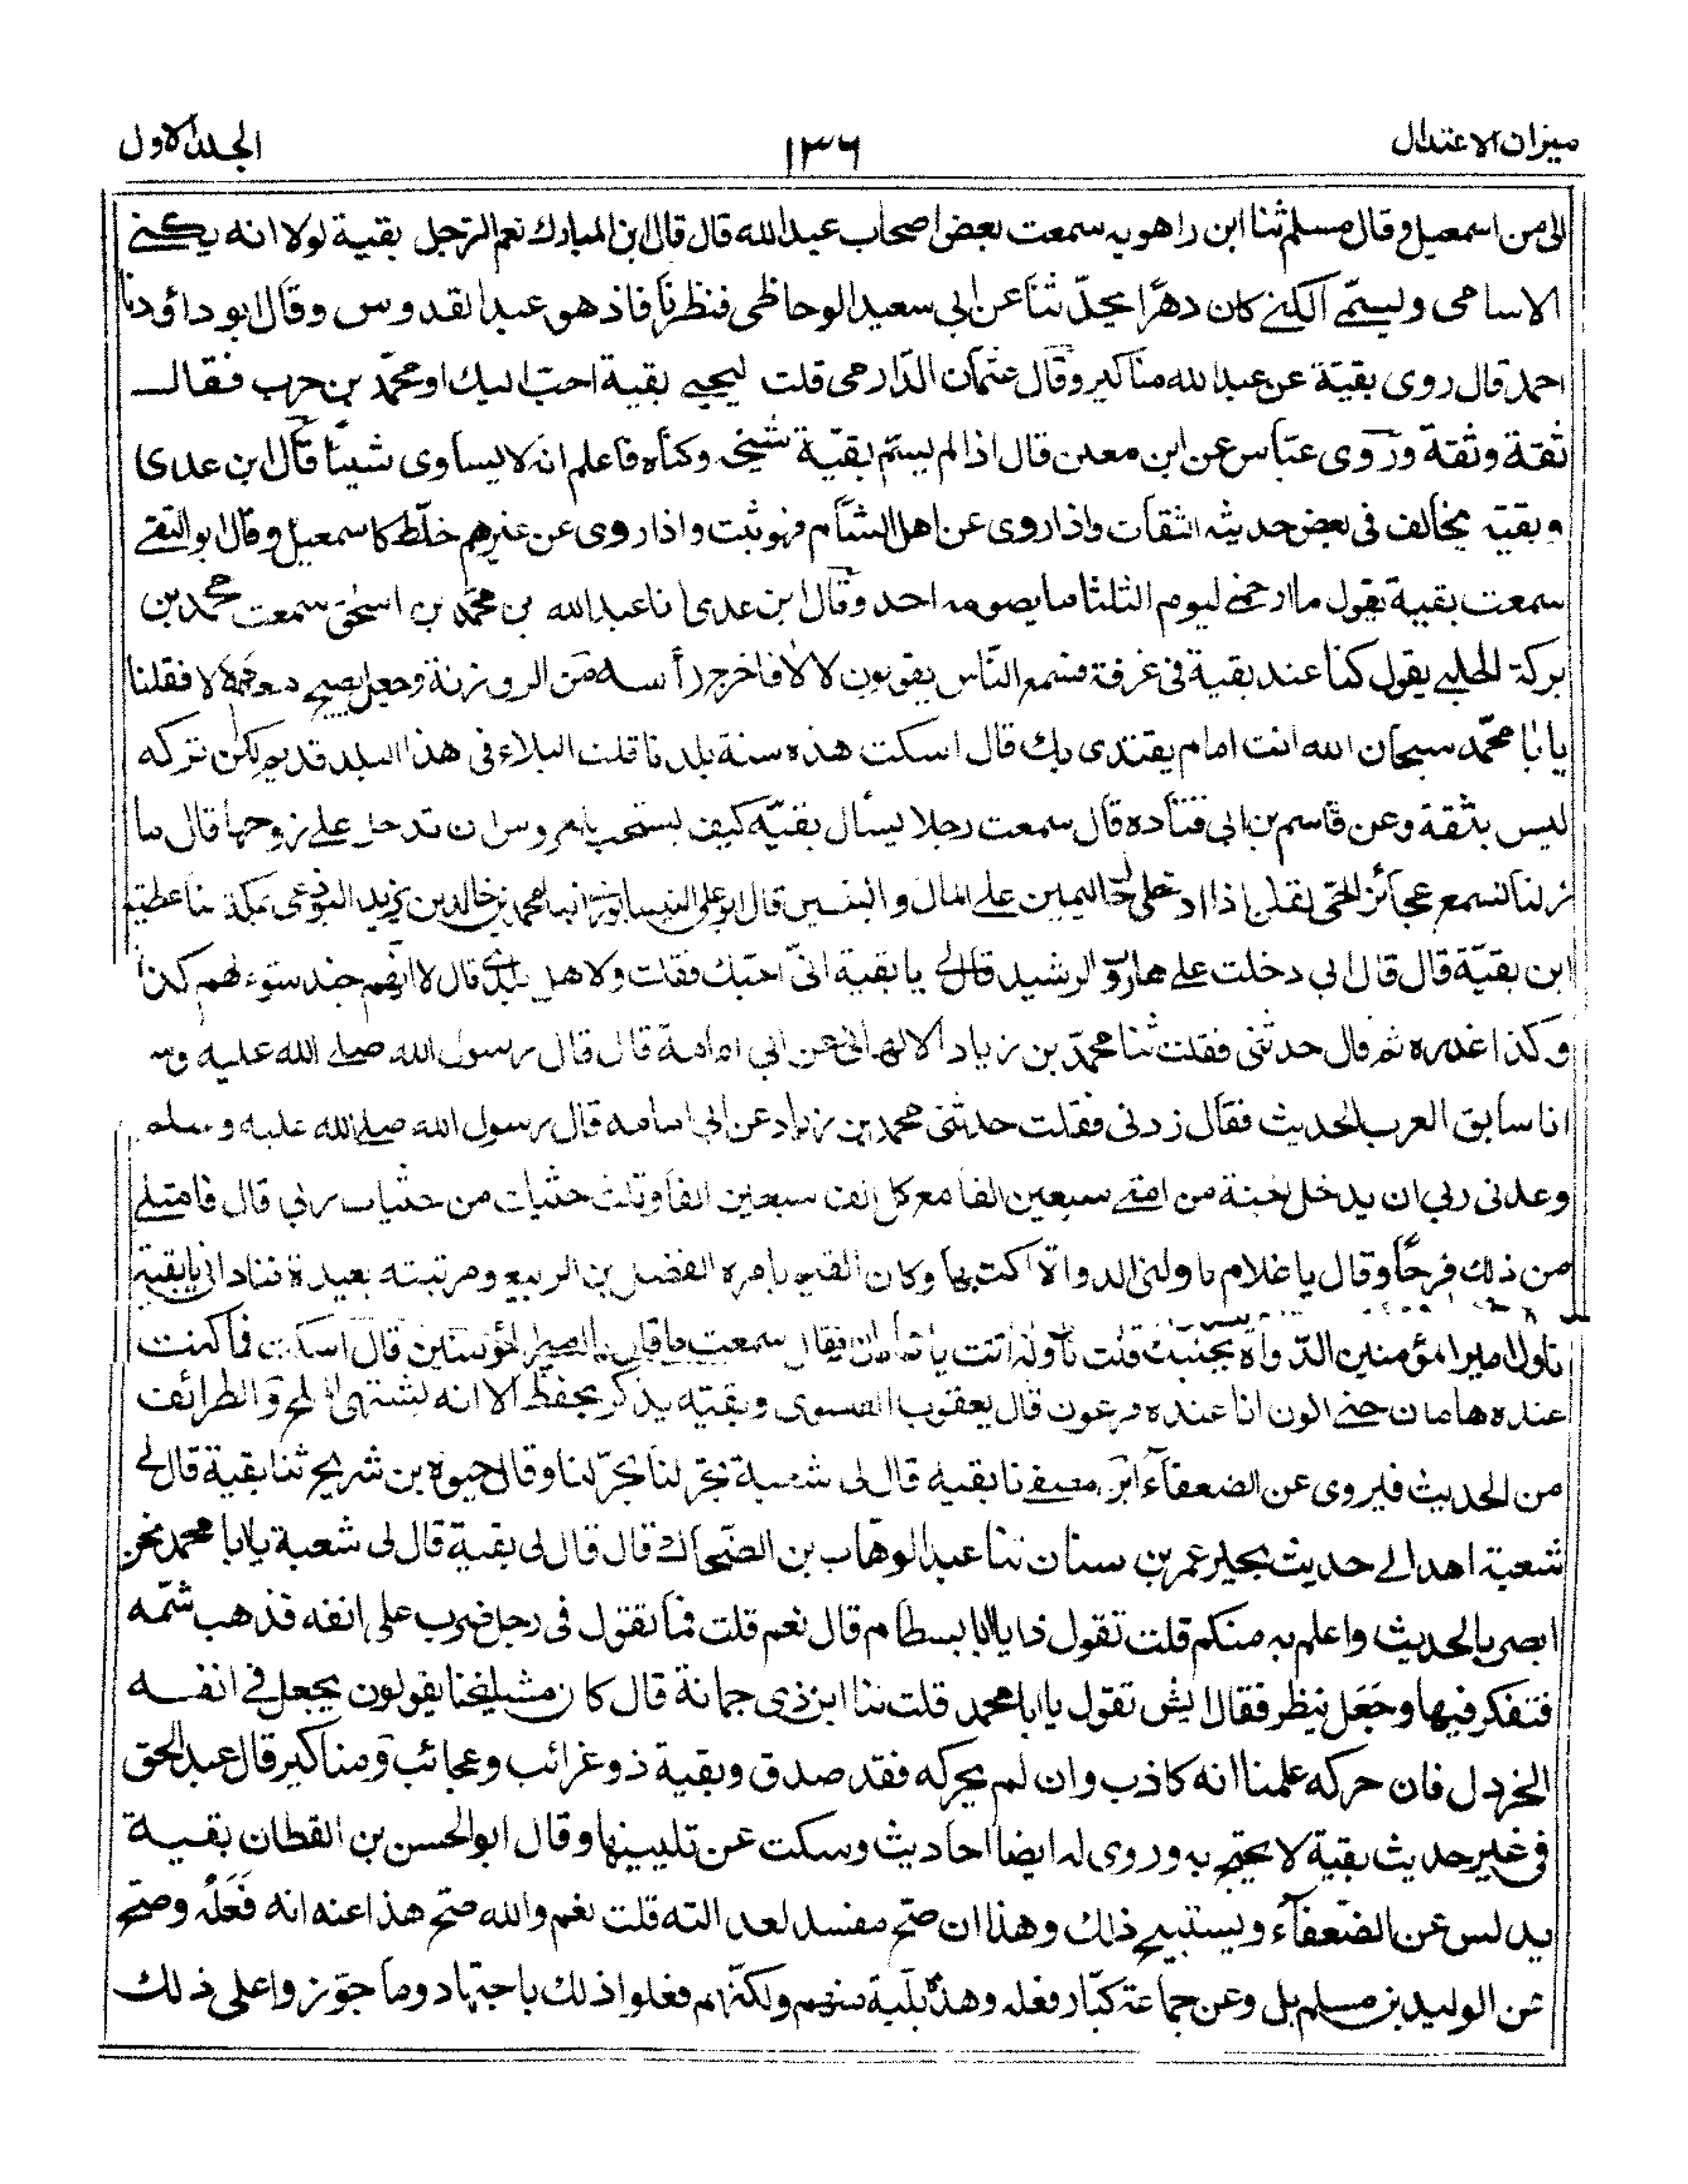 ميزان الاعتدال
١٣٦
الجلد الاول
الى من اسمعيل وقال مسلم ثنا ابن راهويه سمعت بعض اصحاب عبد الله قال قال ابن المبارك نعم الرّجل بقية لولا انه يكنے
الاسامى ويسمّے الكنے كان دهرًا يحدّثنا عن ابى سعيد الوحاظى فنظرنا فاذ هو عبد القدوس وقال ابو داؤد نا
احمد قال روى بقيّة عن عبد الله مناكير وقال عثمان الدّارمى قلت ليحيے بقية احبّ اليك او محمّد بن حرب فقال
ثقة وثقة وروى عبّاس عن ابن معين قال اذا لم يسمّ بقيّة شيخہ وكناه فاعلم انه لا يساوى شيئًا قال ابن عدى
وبقيّة يخالف فى بعض حديثہ الثقات واذا روى عن اهل الشام فهو ثبت واذا روى عن غيرهم خلّط كاسمعيل وقال ابو التقے
سمعت بقية يقول ما ارحمنے ليوم الثلثا ما يصومہ احد وقال ابن عدى نا عبد الله بن محمّد بن اسحٰق سمعت محمد بن
بركة الحلبے يقول كنا عند بقية فى غرفة فسمع النّاس يقولون لا لا فاخرج رأسه من الروزنة وجعل يصيح معهم لا لا فقلنا
يا با محمّد سبحان الله انت امام يقتدى بك قال اسكت هذه سنة بلدنا قلت البلاء فى هذا البلد قديم لكن تركه
ليس بثقة وعن قاسم بن ابى قتاده قال سمعت رجلا يسأل بقيّه كيف يستحب بالعروس ان تدخل علے زوجها قال ما
زلنا نسمع عجائز الحى يقلن اذا ادخلى اليمين علے المال والبنين قال ابو على النيسابورى محمد بن خالد بن يزيد بمكة نا عطية
ابن بقيّة قال قال ابى دخلت علے هارون الرشيد قال يا بقية انّى احبّك فقلت ولاهل بلدى قال لا انهم جند سوء لهم كذا
وكذا غدره ثم قال حدثنى فقلت ثنا محمّد بن زياد الالهانى عن ابى امامة قال قال رسول الله صلے الله عليه وس
انا سابق العرب الحديث فقال زدنى فقلت حدثنى محمد بن زياد عن ابى امامه قال رسول الله صلے الله عليه وسلم
وعدنى ربى ان يدخل الجنة من امتے سبعين الفا مع كل الف سبعين الفا وثلث حثيات من حثيات ربى قال فامتلے
من ذلك فرحًا وقال يا غلام ناولنى الدواة اكتب بها وكان القيم بامره الفضل بن الربيع ومرتبته بعيدة فنادانى يا بقية
ناول امير المؤمنين الدّواة بجنبك قلت ناوله انت يا هامان فقال سمعت ما قال يا امير المؤمنين قال اسكت فما كنت
عنده هامان حتے اكون انا عنده فرعون قال يعقوب الفسوى وبقيّه يذكر بحفظ الا انه يشتهى الملح والطرائف
من الحديث فيروى عن الضعفاء ابن مصفے نا بقيه قال لى شعبة بحّر لنا بحّر لنا وقال حيوة بن شريح ثنا بقية قال لے
شعبة اهد الے حديث بحير عمر بن سنان ثنا عبد الوهّاب بن الضحّاك قال قال لى بقية قال لى شعبة يا با محمد نحن
ابصر بالحديث واعلم به منكم قلت تقول ذا يا ابا بسطام قال نعم قلت فما تقول فى رجل ضرب على انفه فذهب شمّه
فتفكر فيها وجَعَل ينظر فقال ايش تقول يا ابا محمد قلت ثنا ابن ذى حمانة قال كان مشيختنا يقولون يجعل فى انفه
الخردل فان حركه علمنا انه كاذب وان لم يحركه فقد صدق وبقية ذو غرائب وعجائب ومناكير قال عبد الحق
فى غير حديث بقية لا يحتج به وروى له ايضا احاديث وسكت عن تليينها وقال ابو الحسن بن القطان بقية
يدلس عن الضعفاء ويستبيح ذلك وهذا ان صحّ مفسد لعدالته قلت نعم والله صحّ هذا عنه انه فَعَلَه وصحّ
عن الوليد بن مسلم بل وعن جماعة كبار فعله وهذه بلّية منهم ولكنّهم فعلوا ذلك باجتهاد وما جوّزوا على ذلك